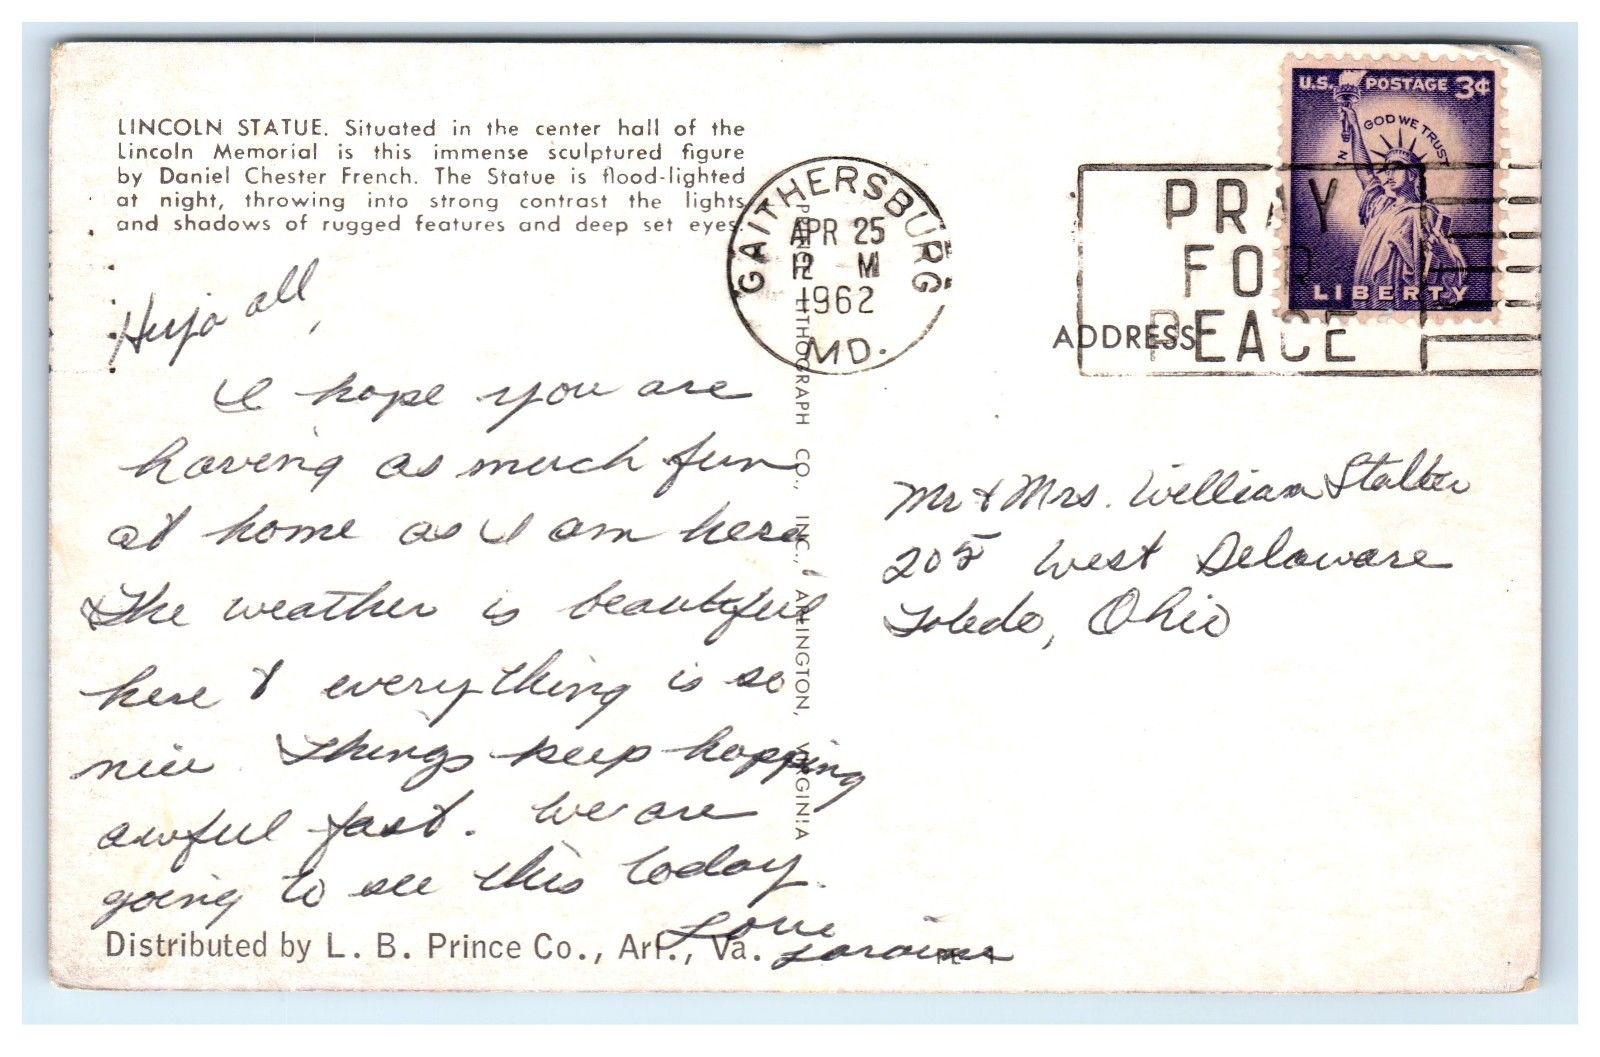 LINCOLN STATUE. Situated in the center hall of the
Lincoln Memorial is this immense sculptured figure
by Daniel Chester French. The Statue is flood-lighted
at night, throwing into strong contrast the lights
and shadows of rugged features and deep set eyes.
Hiya all,
I hope you are
having as much fun
at home as I am here
The weather is beautiful
here & everything is so
nice. Things keep hopping
awful fast. We are
going to see this today.
Love
Distributed by L. B. Prince Co., Arl., Va.
LITHOGRAPH CO., INC., ARLINGTON, VIRGINIA
GAITHERSBURG
APR 25
12 M
1962
MD.
PRAY
FOR
PEACE
U.S. POSTAGE 3¢
IN GOD WE TRUST
LIBERTY
ADDRESS
Mr & Mrs. William Stalter
205 West Delaware
Toledo, Ohio